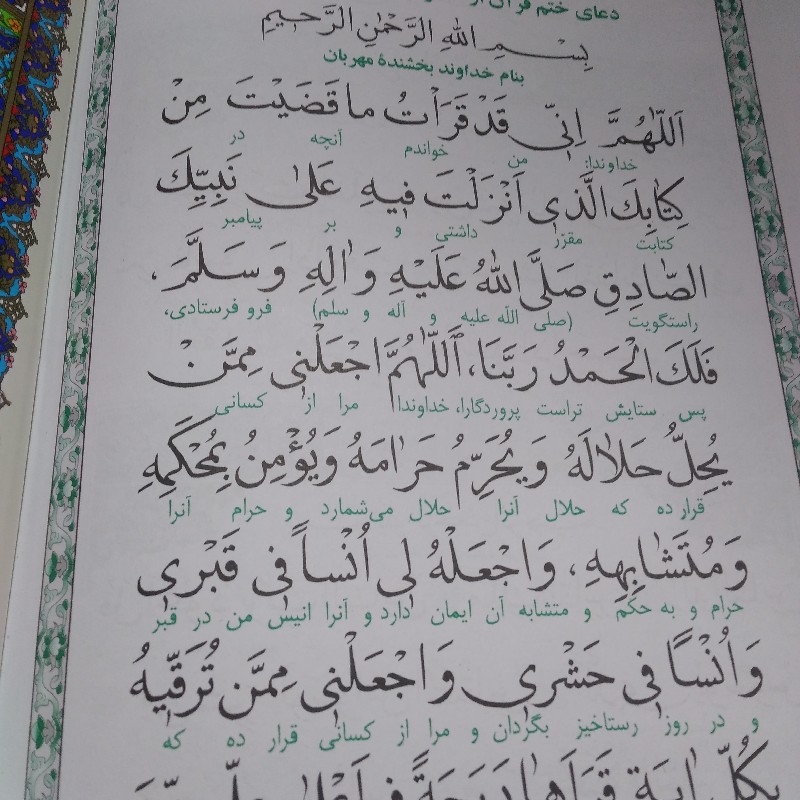 دعای ختم قرآن از
بِسْمِ اللّٰهِ الرَّحْمٰنِ الرَّحیمِ
بنام خداوند بخشندهٔ مهربان
اَللّٰهُمَّ اِنّی قَدْ قَرَأْتُ ما قَضَیْتَ مِنْ
خداوندا: من خواندم آنچه در
کِتابِکَ الَّذی اَنْزَلْتَ فیهِ عَلیٰ نَبِیِّکَ
کتابت مقرّر داشتی و بر پیامبر
الصّادِقِ صَلَّی اللّٰهُ عَلَیْهِ وَ اٰلِهِ وَ سَلَّمَ.
راستگویت (صلی اللّه علیه و آله و سلم) فرو فرستادی،
فَلَکَ الْحَمْدُ رَبَّنَا، اَللّٰهُمَّ اجْعَلْنی مِمَّنْ
پس ستایش تراست پروردگارا، خداوندا مرا از کسانی
یُحِلُّ حَلالَهُ وَ یُحَرِّمُ حَرامَهُ وَ یُؤْمِنُ بِمُحْکَمِهِ
قرار ده که حلال آنرا حلال می‌شمارد و حرام آنرا
وَ مُتَشابِهِهِ، وَ اجْعَلْهُ لی اُنْساً فی قَبْری
حرام و به حکم و متشابه آن ایمان دارد و آنرا انیس من در قبر
وَ اُنْساً فی حَشْری وَ اجْعَلْنی مِمَّن تُرَقّیهِ
و در روز رستاخیز بگردان و مرا از کسانی قرار ده که
بِکُلِّ اٰیَةٍ قَرَأَها دَرَجَةً فی اَعْلیٰ